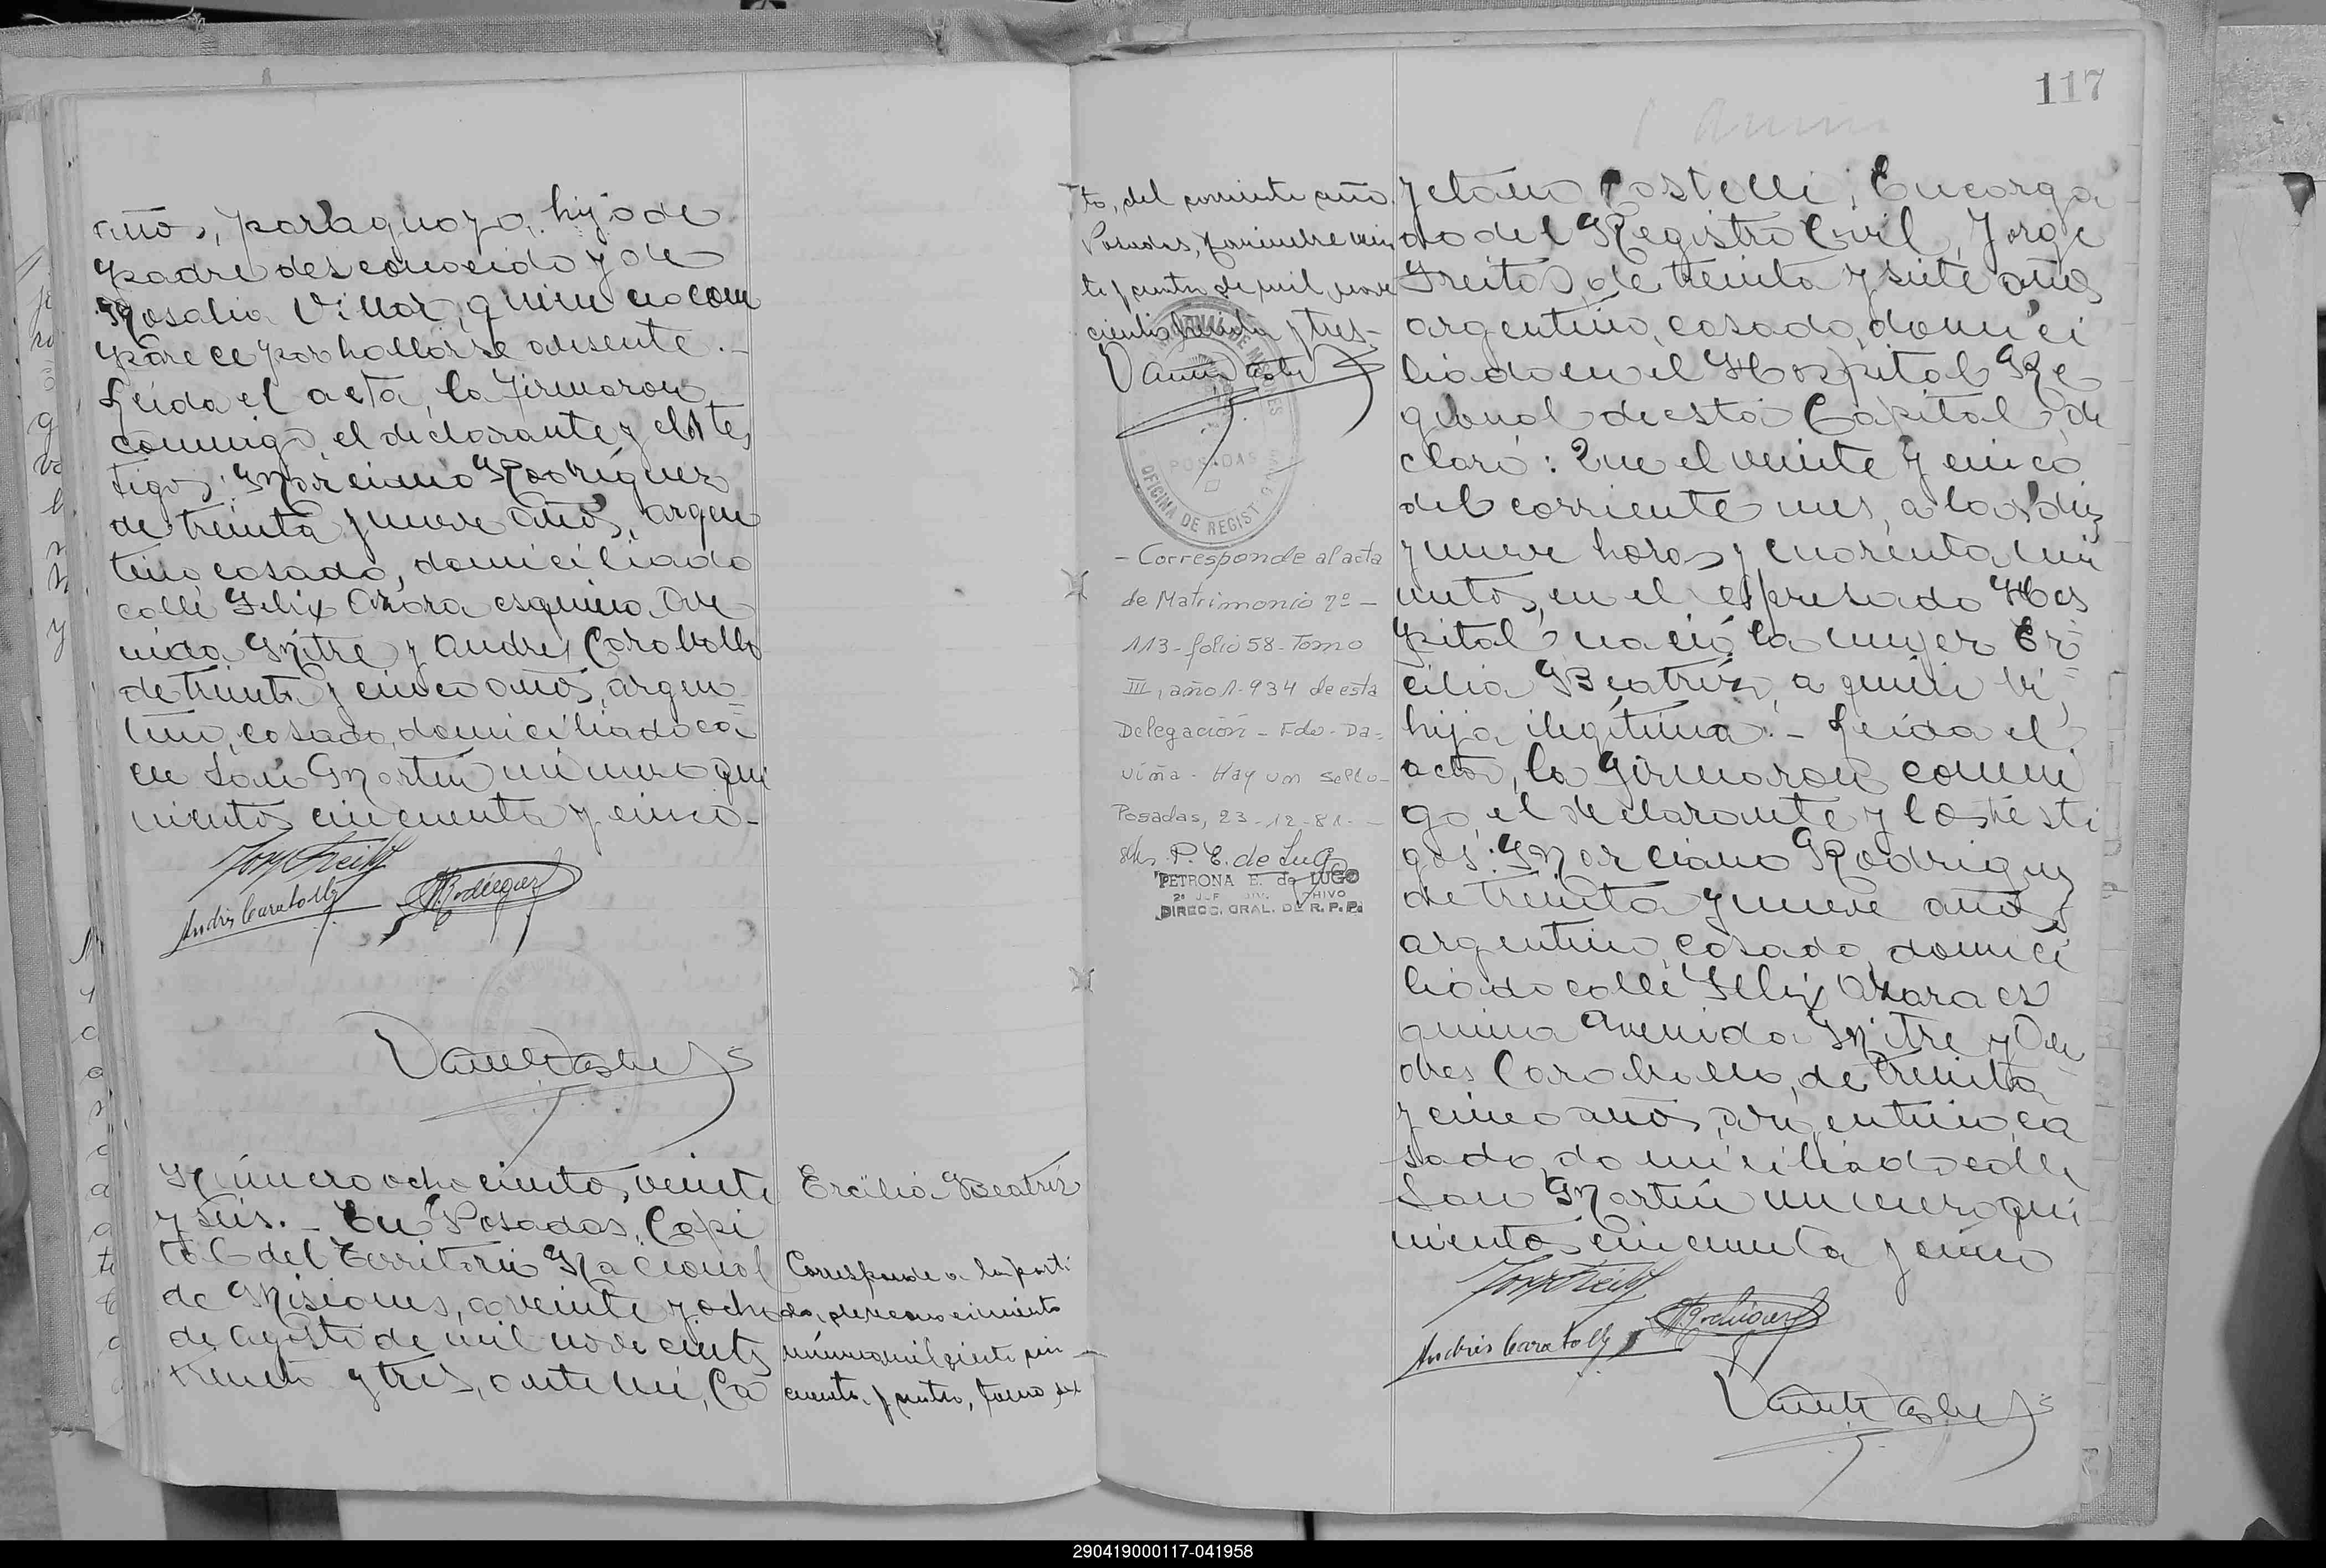 años, paraguaya, hija de
padre desconocido y de
Rosalia Villar, quien no com
parece por hallarse ausente.-
Leída el acta, la firmaron
conmigo, el declarante y los tes
tigos: Marciano Rodríguez
de treinta y nueve años, argen
tino, casado, domiciliado
calle Felix Azara esquina Ave
nida Mitre y Andres Caraballo
de treinta y cinco años, argen=
tino, casado, domiciliado ca
lle San Martín número qui
nientos cincuenta y cinco.-
Andrés Caraballo
M Rodríguez
Número ochocientos veinte
y seis.- En Posadas, Capi
tal del Territorio Nacional
de Misiones, a veinte y ocho
de agosto de mil novecientos
treinta y tres, ante mi, Ca
Ercilia Beatriz
Corresponde a la parti
da, de reconocimiento
número mil ciento cin
cuenta y cuatro, tomo sex
117
to, del corriente año.
Posadas, Noviembre vein
te y cuatro de mil nove
cientos treinta y tres.-
POSADAS
OFICINA DE REGIST
- Corresponde al acta
de Matrimonio nº -
113 - folio 58 - Tomo
III, año 1.934 de esta
Delegación - Fdo. Da-
viña - Hay un sello -
Posadas, 23-12-81. -
P. E. de Lugo
PETRONA E. de LUGO
DIRECC. GRAL. DE R. P. P.
yetano Castelli, Encarga
do del Registro Civil, Jorge
Freitas, de treinta y siete años
argentino, casado, domici
liado en el Hospital Re
gional de esta Capital, de
claró: Que el veinte y cinco
del corriente mes, a las diez
y nueve horas y cuarenta mi
nutos, en el expresado Hos
pital nació la mujer Er
cilia Beatriz, a quien vi,
hija ilegítima.- Leída el
acta, la firmaron conmi
go, el declarante y los testi
gos: Marciano Rodriguez
de treinta y nueve años,
argentino, casado, domici
liado calle Felix Azara es
quina Avenida Mitre y An
dres Caraballo, de treinta
y cinco años, argentino, ca
sado, domiciliado calle
San Martín número qui
nientos cincuenta y cinco
M Rodríguez
Andrés Caraballo
290419000117-041958